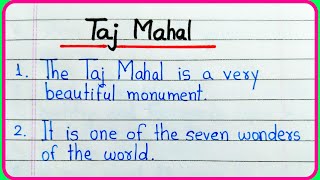 Taj Mahal
1. The Taj Mahal is a very
beautiful monument.
2. It is one of the seven wonders
of the world.